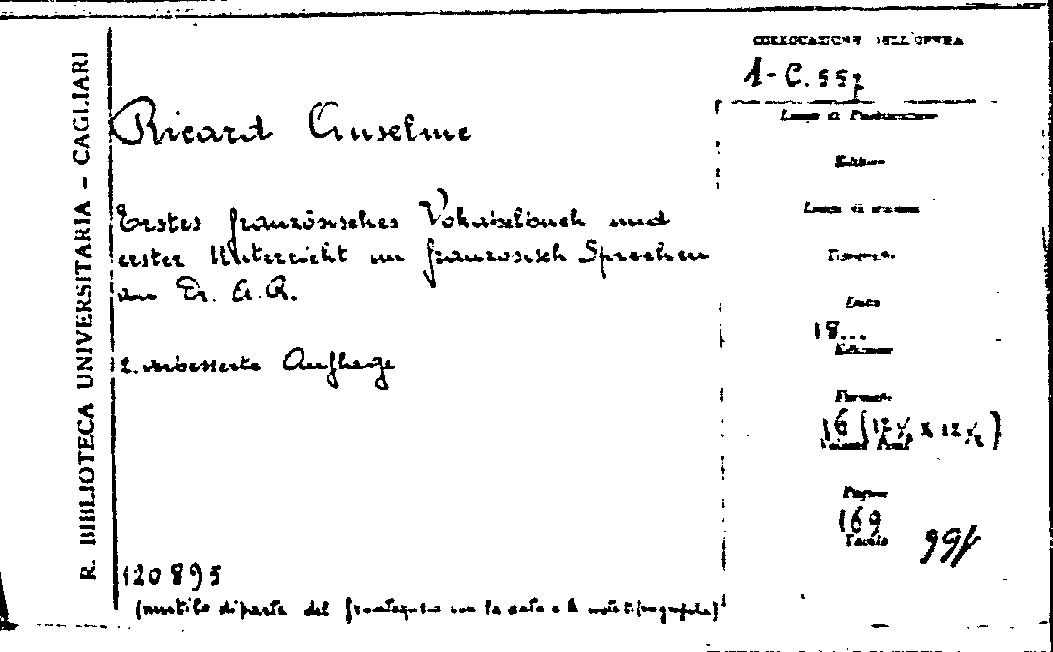 R. BIBLIOTECA UNIVERSITARIA - CAGLIARI
COLLOCAZIONE DELL'OPERA
1-C.557
Ricard Anselme
Luogo di Pubblicazione
Editore
Erstes französisches Vokabelbuch und
Luogo di stampa
erster Unterricht im französisch Sprechen
Tipografo
von Dr. A. R.
Data
18...
Edizione
2. verbesserte Auflage
Formato
16 (12 ½ x 12 ½)
Volumi
Pagine
169
Tavole
99f
120895
(mutilo di parte del frontespizio con la data e le note tipografiche)